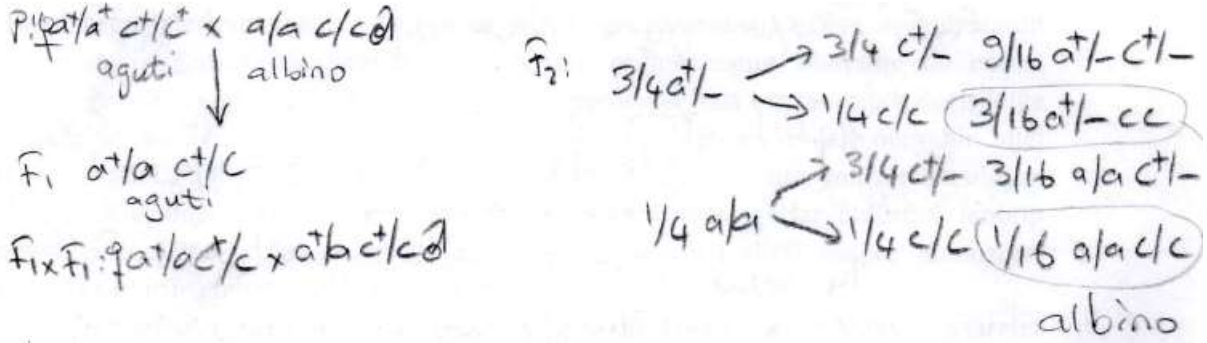 P: ♀ a⁺/a⁺ c⁺/c⁺ x a/a c/c ♂
aguti albino
F₁ a⁺/a c⁺/c
aguti
F₁xF₁: ♀ a⁺/a c⁺/c x a⁺/a c⁺/c ♂
F₂: 3/4 a⁺/- 3/4 c⁺/- 9/16 a⁺/- c⁺/-
1/4 c/c 3/16 a⁺/- cc
1/4 a/a 3/4 c⁺/- 3/16 a/a c⁺/-
1/4 c/c 1/16 a/a c/c
albino